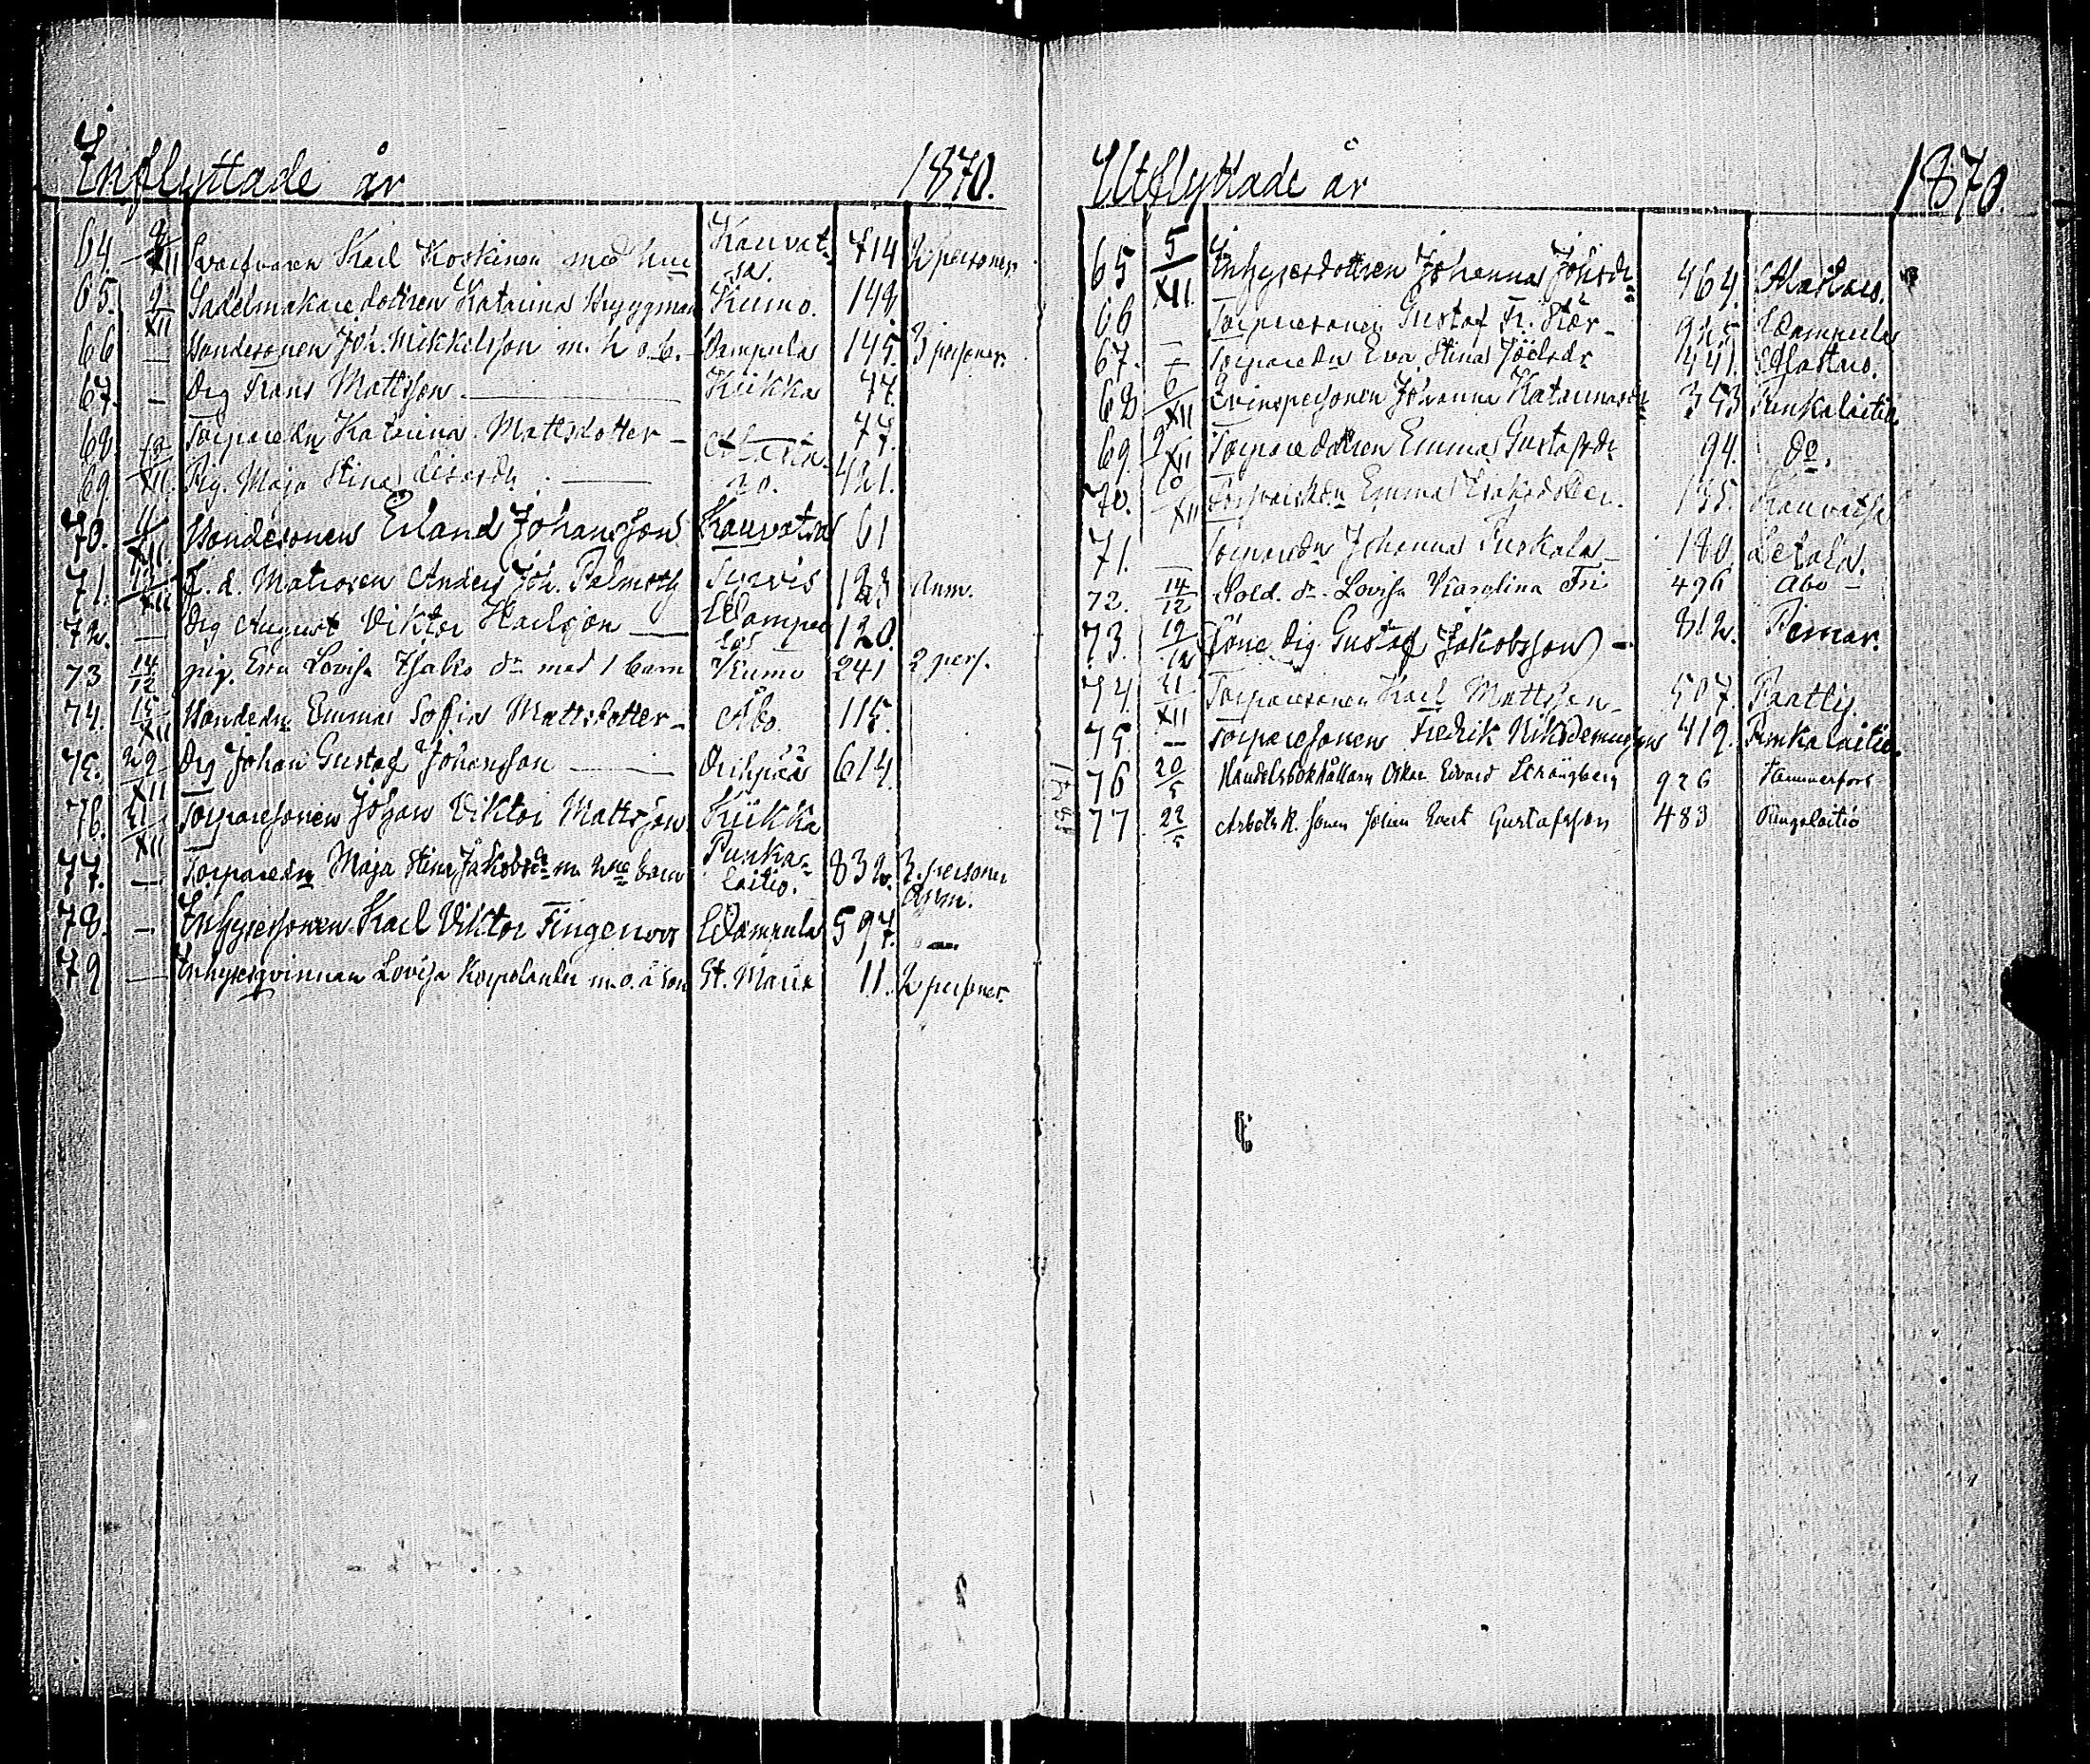 Inflyttade år 1870.
64. 2/XII Svarfvaren Karl Koskinen med hu Kauvat- 714 2 personer
sa.
65. 2/XII Sadelmakaredottren Katarina Kumo. 148
66 — Bondesonen Joh. Mikkelsson m. h. o. b. Vampula 145. 3 personer.
67. — Drg Frans Mattsson — Kiikka 77.
68. Torparedn Katarina Mattsdotter — 77.
69. XII. Pig. Maja Stina — ro. 421.
70. XII. Bondesonen Erland Johansson Kauvatsa 61
71. XII F. d. Matrosen Anders Joh. Palmroth Tyrvis 123 Anm.
72. — Drg August Viktor Karlsson — Wampu 120.
la
73 14/12 pig. Eva Lovisa Isaks dr med 1 barn Kumo 241 2 pers.
74. 15/XII Bondedn Emma Sofia Mattsdotter — Åbo. 115.
75. 29/XII Drg Johan Gustaf Johansson — Oripää 614.
76. 31/XII Torparesonen Johan Viktor Mattsson Kiikka
77. — Torparedn Maja Stina Jakobsdr m. 2ne barn Punka- 832. 3. personer
laitio. Anm.
78. — Inhysessonen Karl Viktor Wampula 597. —
79 — Inhysesqvinnan Lovisa Korpelander m. o. ä son St. Marie 11. 2 personer.
Utflyttade år 1870.
65 5/XII Inhysesdottren Johanna Johsdr 464. Alastaro.
66 — Torparesonen Gustaf Fr. — 925 Wampula
67. — Torparedn Eva Stina Joelsdr 441. Alastaro.
68 6/XII Qvinspersonen Johanna Katarina 353 Punkalaitio.
69. 9/XII Torparedottren Emma Gustafsdr 94. do.
70. 10/XII Emma Isaksdotter. 135. Kauvatsa
71. — Torparedn Johanna Puskala — 180 Letala.
72. 14/12 Sold. dr. Lovisa Karolina Fri 496 Åbo —
73. 19/12 Drg Gustaf Jakobsson — 812. Pemar.
74. 21/XII Torparesonen Karl Mattsson — 507. Paattis.
75. — Torparesonen Fredrik Nikodemusson 419. Punkalaitio.
1871
76 20/5 Handelsbokhållaren Oskar Edvard Strängberg 926 Tammerfors
77 22/5 Arbets k. sonen Johan Evert Gustafsson 483 Pungalaitio